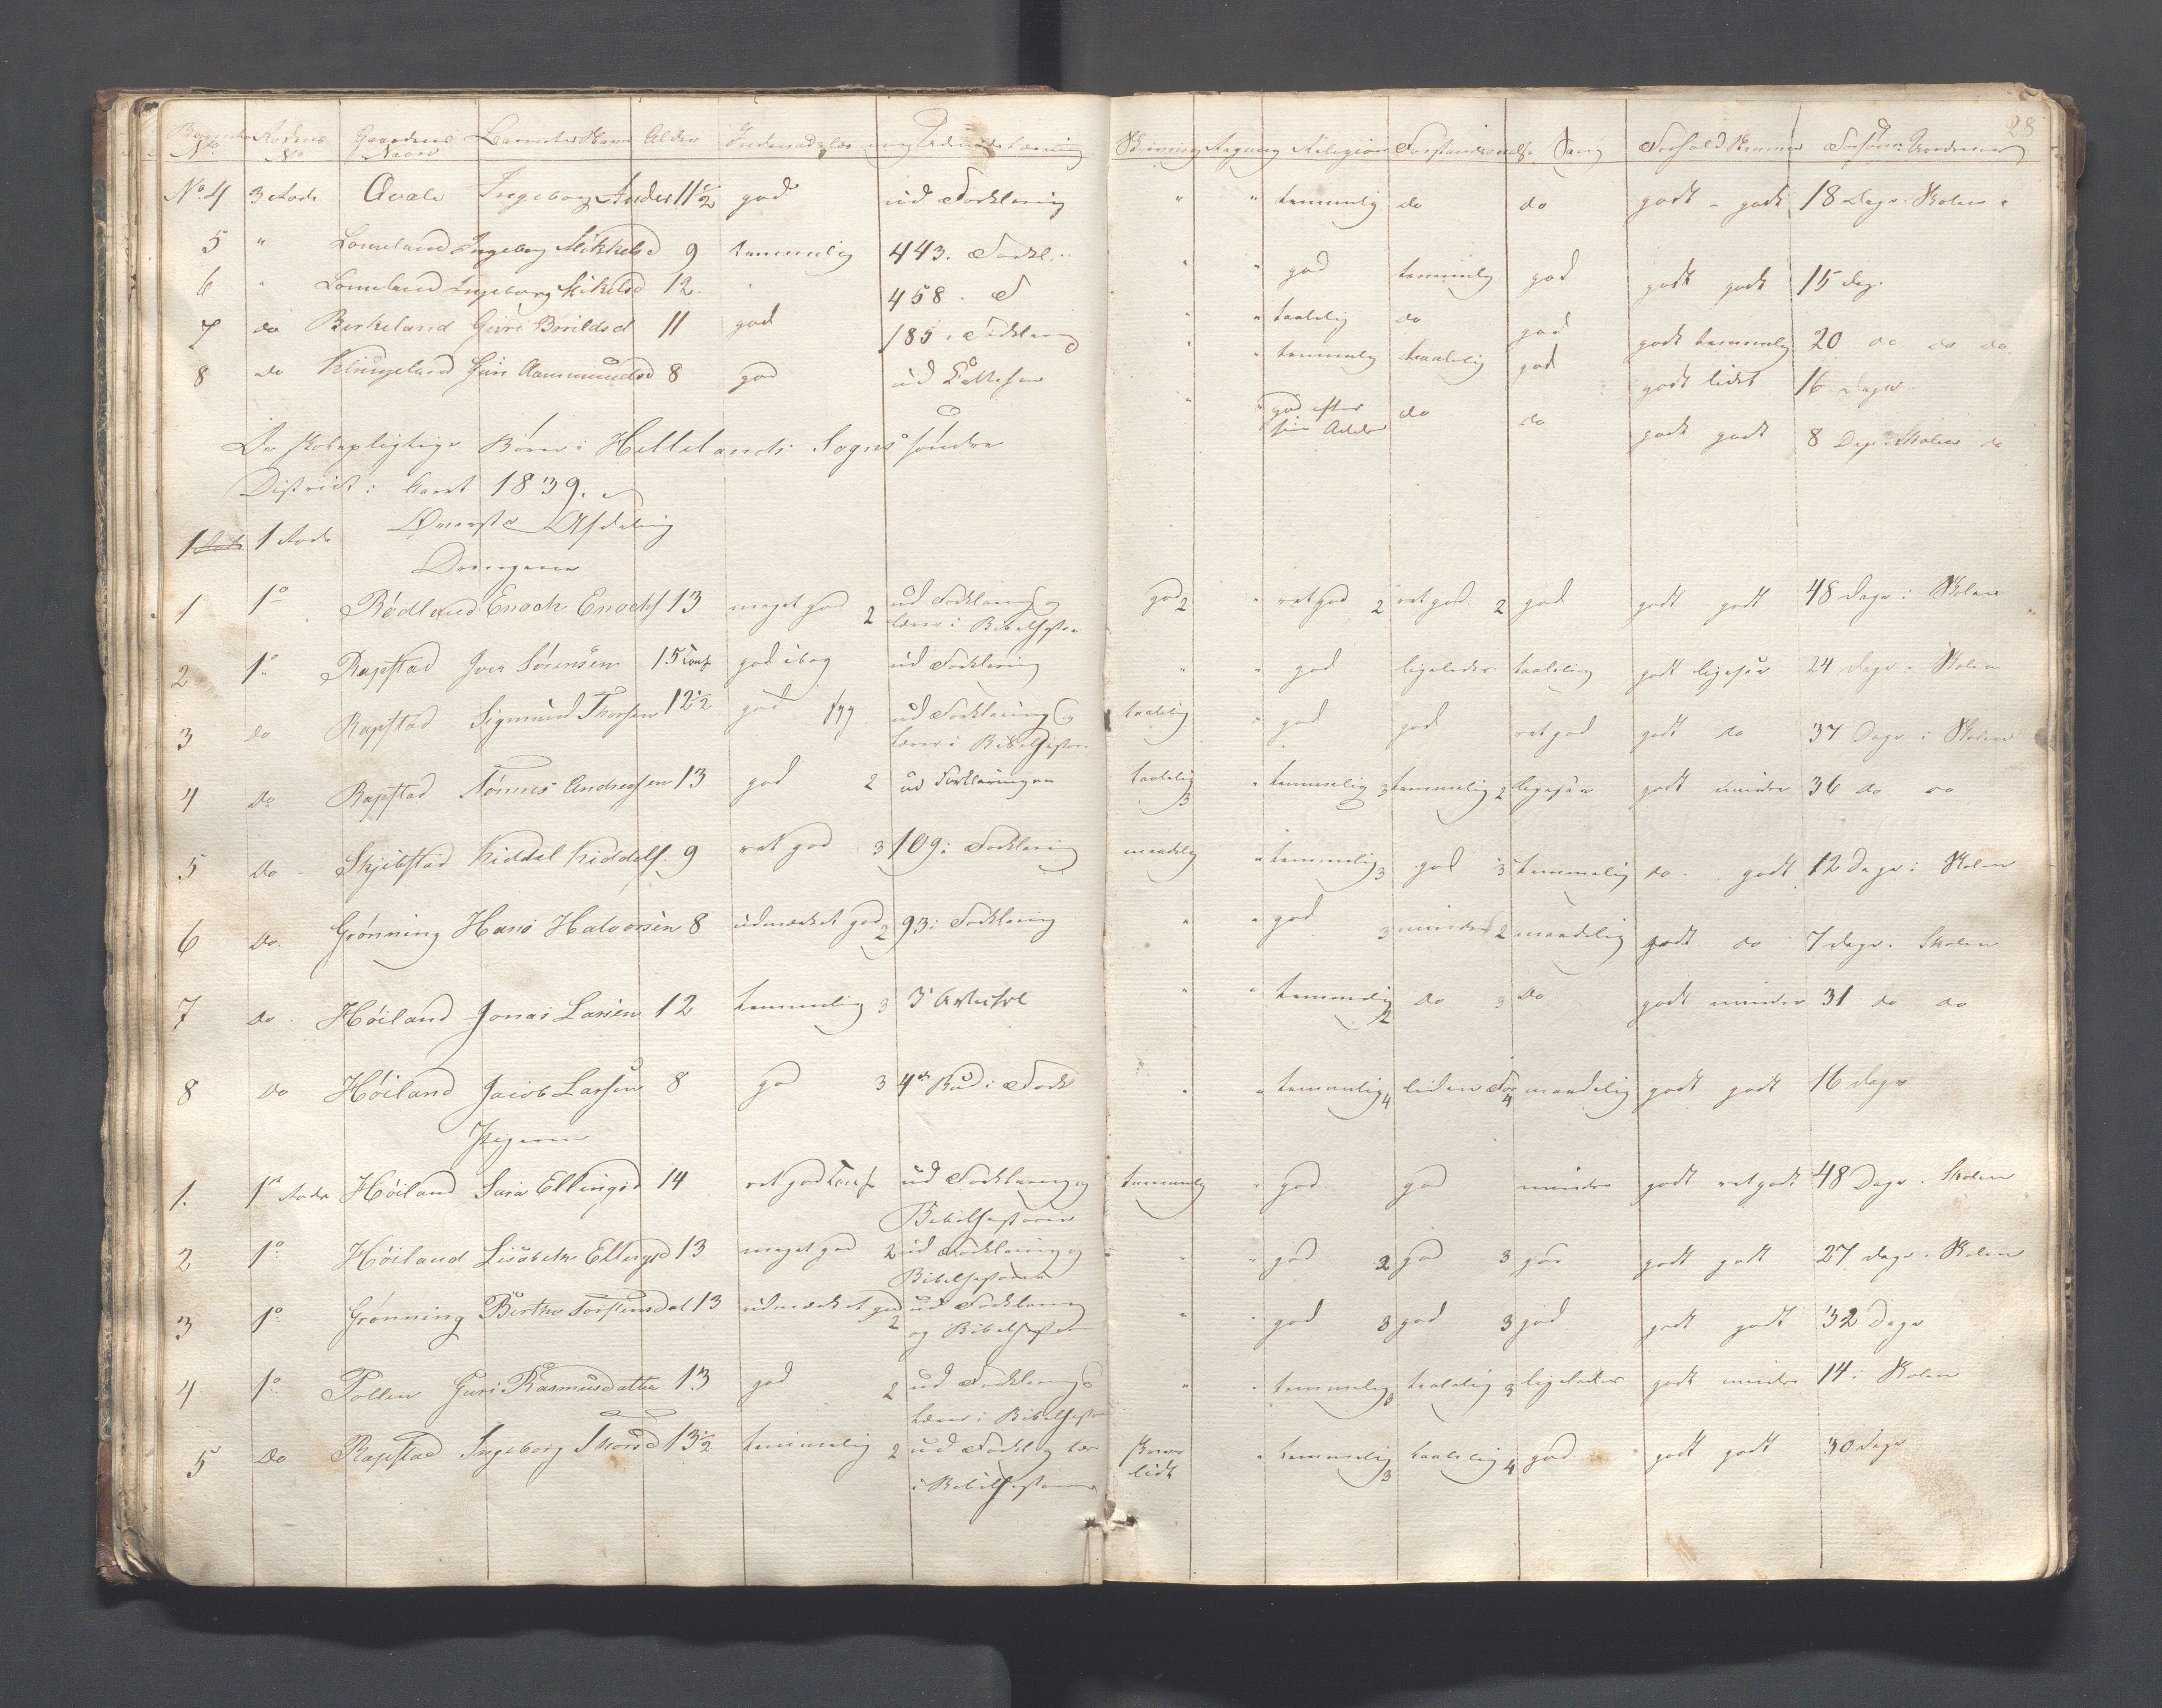 28
No Rodens No Gaardens Navn Barnets Navn Alder Indenadslæsning Udenadslæsning Skrivning Regning Religion Forstandsøvelse Sang Forhold Forsømmelse
No 4 3 Rode Qvale Ingeborg Andersd 11½ god ud Forklaring " " temmelig do do godt - godt 18 Dage i Skolen
5 " Lomeland Ingeborg Mikkelsd 9 temmelig 443. Forkl. " " god temmelig god godt godt 15 dag.
6 " Lomeland Ingeborg Mikelsd 12 " 458. F " " taalelig do god godt temmelig 20 do do do
7 do Birkeland Guri Borildsd 11 god 185. Forklaring " " temmelig taalelig god godt lidt 16 Dage
8 do Klungeland Guri Aammundsd 8 god ud " " god efter sin Alder do do godt godt 8 Dage i Skolen do
De skolepligtige Børn i Hellelands Sogns søndre
District i Aaret 1839.
1 1 Rode Øverste Afdeling
Drengene
1 1o Rødland Enoch Enochs 13 meget god 2 ud Forklaring og læser i Bibelhistorie god 2 " ret god 2 ret god 2 god godt godt 48 Dage i Skolen
2 1o Rapstad Iver Sørensen 15 Conf god i bog ud Forklaring " " god ligeledes taalelig godt ligesaa 24 Dage i Skolen
3 do Rapstad Sigmund Thorsen 12½ god ud Forklaring og læser i Bibelhistorie taalelig " god god ret god godt do 37 Dage i Skolen
4 do Rapstad Tønnes Andreasen 13 god 2 ud Forklaringen taalelig 3 " temmelig 3 temmelig 2 ligesaa godt mindre 36 do do
5 do Skjibstad Kiddel Kiddels. 9 ret god 3 109 i Forklaring maadelig " temmelig 3 god 3 temmelig do godt 12 Dage i Skolen
6 do Grønning Hans Halvorsen 8 udmærket god 2 93 i Forklaring " " god 3 mindre 2 maadelig godt do 7 Dage i Skolen
7 do Høiland Jonas Larsen 12 temmelig 3 3 Artikel " " temmelig 2 do 3 do godt mindre 31 do do
8 do Høiland Jacob Larsen 8 god 3 4de Bud i Fork " " temmelig 4 liden For 4 maadelig godt godt 16 Dage
Pigerne
1. 1ste Rode Høiland Sara Ellingsd 14 ret god Conf ud Forklaring og Bibelhistorie temmelig " god god mindre godt ret godt 48 Dage i Skolen
2 1o Høiland Lisabeth Ellingsd 13 meget god 2 ud Forklaring og Bibelhistorie " " god 2 god 3 god godt godt 27 Dage i Skolen
3 1o Grønning Berthe Torstensdat 13 udmærket god 2 ud Forklaring og Bibelhistorie " " god 3 god 3 god godt godt 32 Dage
4 1o Tollen Guri Rasmusdatter 13 god 2 ud Forklaring læser i Bibelhistorie " " temmelig 3 taalelig 3 ligeledes godt mindre 14 i Skolen
5 do Rapstad Ingeborg Thorsd 13½ temmelig 2 ud Forkl og læs i Bibelhistorien skriver lidt " temmelig 3 taalelig 4 god godt godt 30 Dage